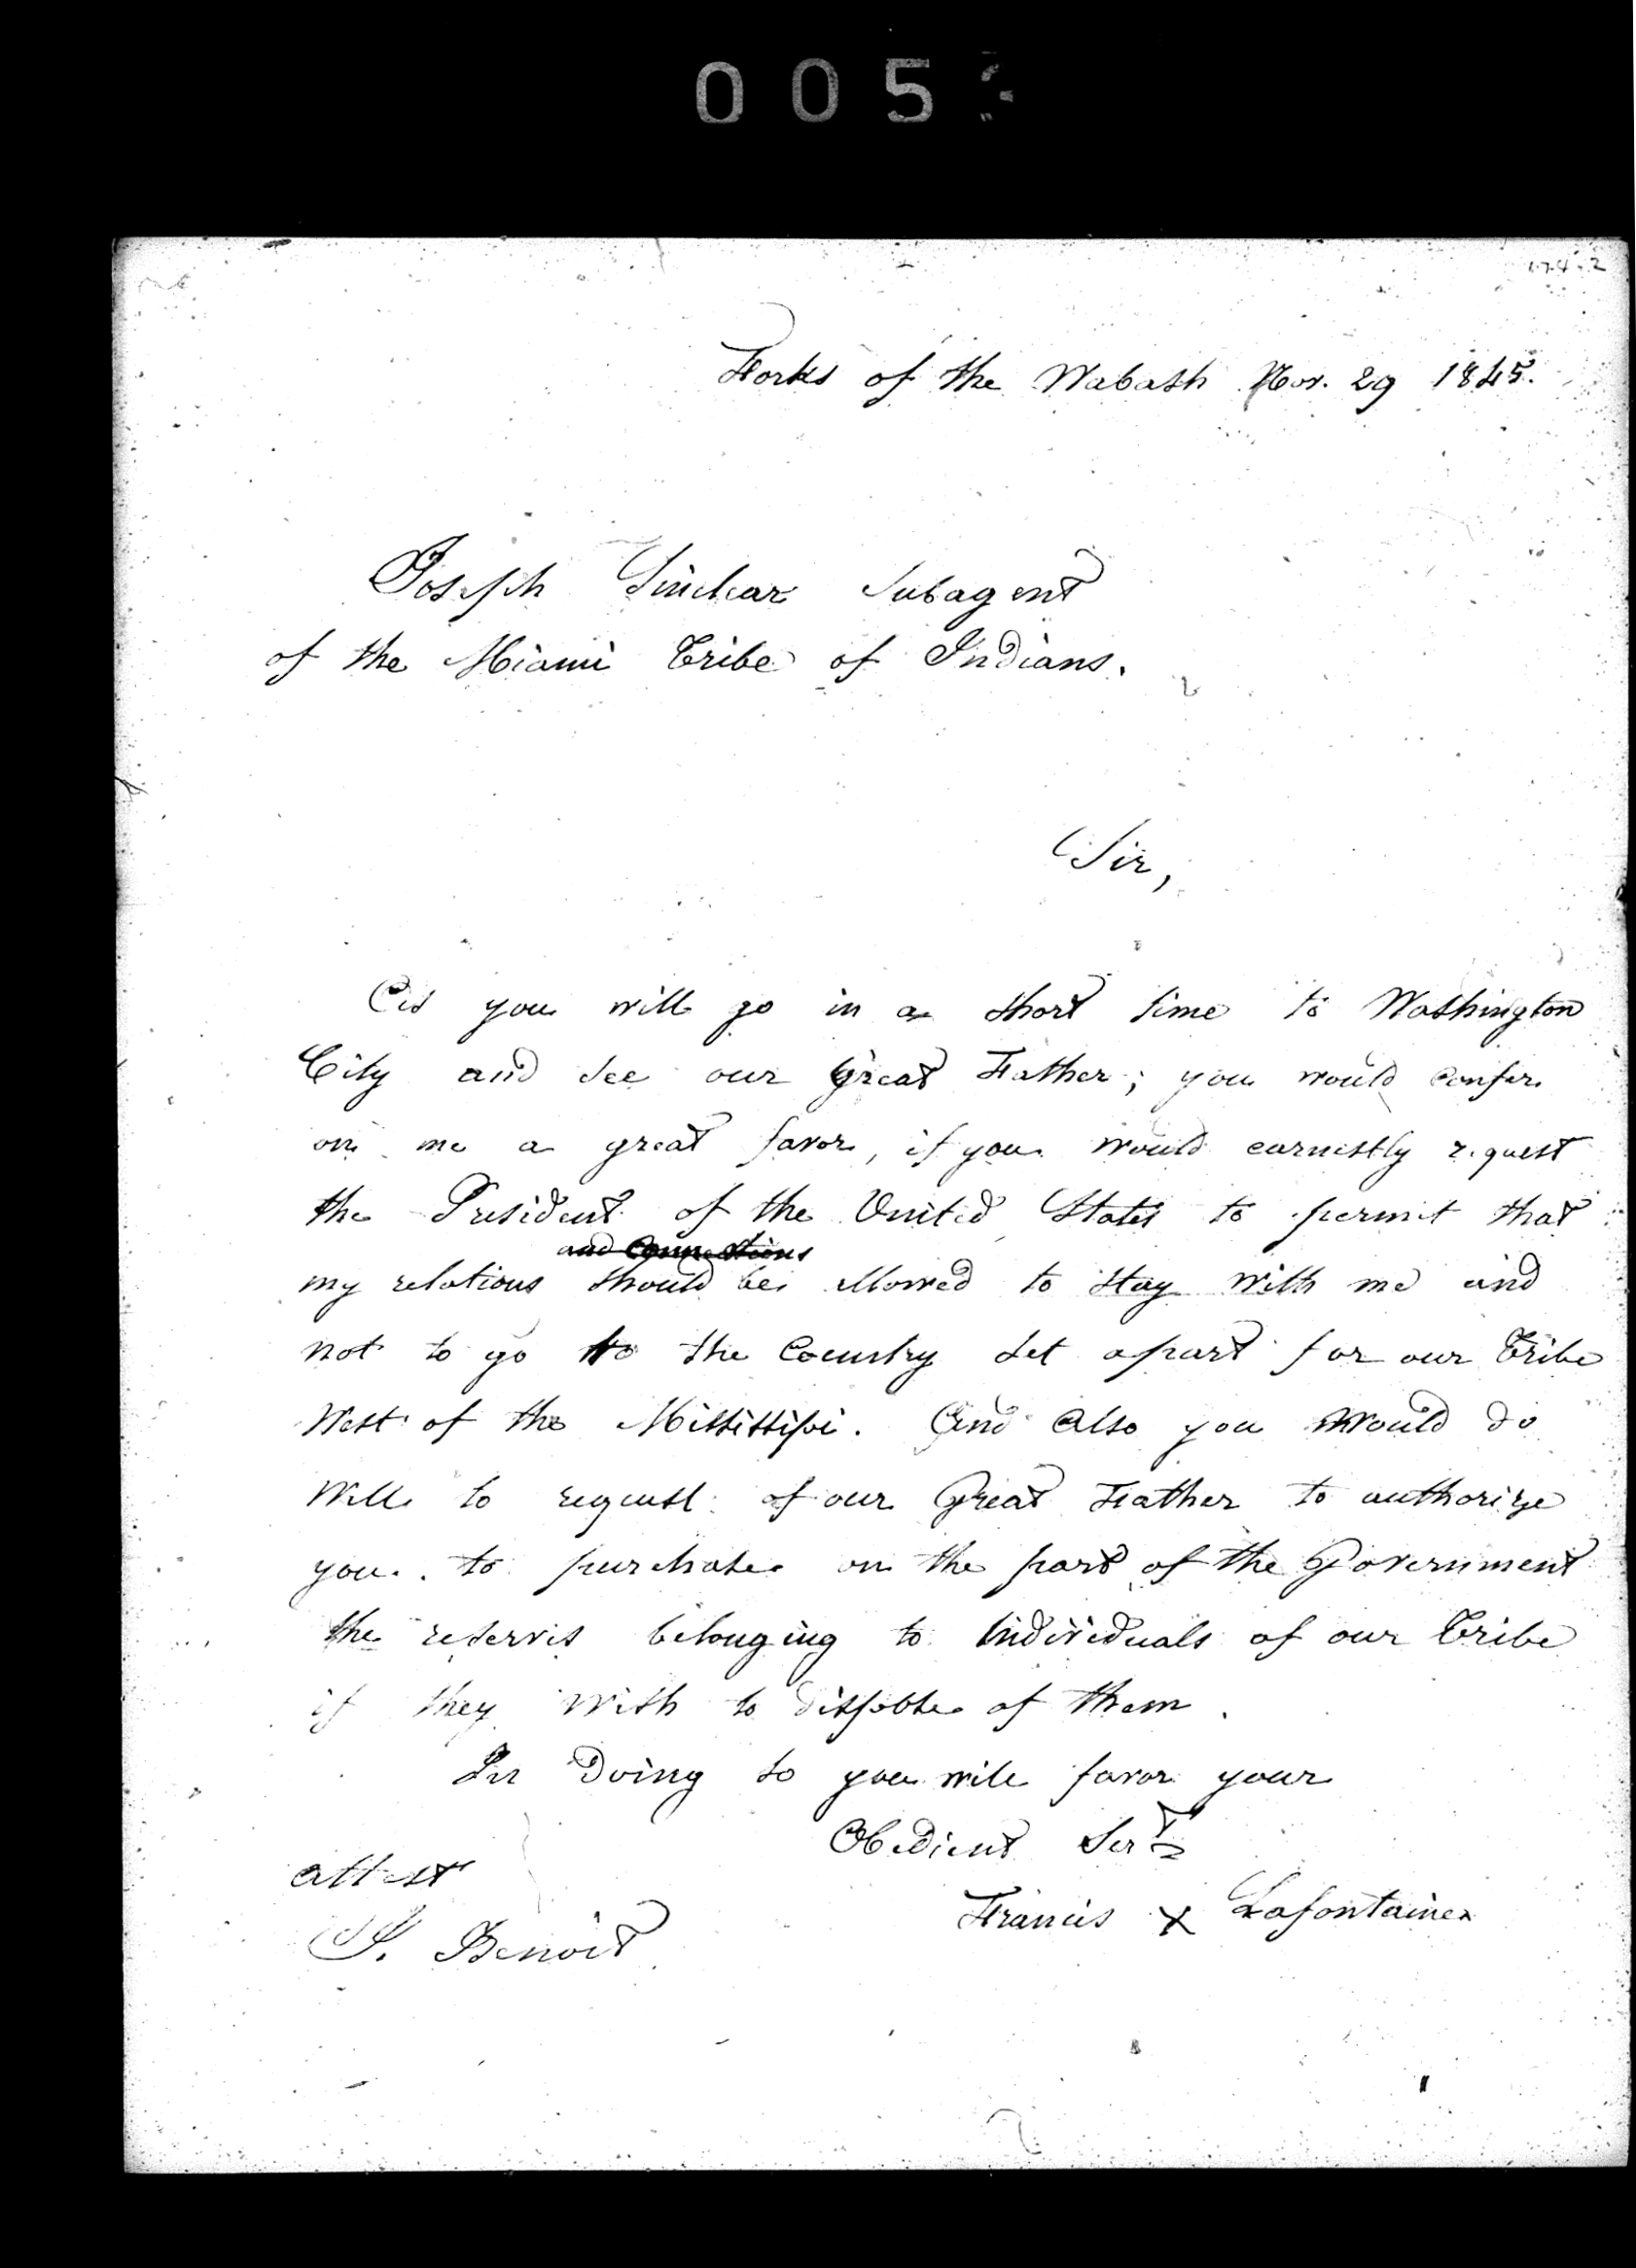 005
Forks of the Wabash Nov. 29 1845.
Joseph Sinclear Subagent
of the Miami Tribe of Indians.
Sir,
As you will go in a short time to Washington
City and see our great Father; you would confer
on me a great favor, if you would earnestly request
the President of the United States to permit that
and connections
my relations should be allowed to stay with me and
not to go to the Country set apart for our Tribe
West of the Mississipi. And also you would do
well to request of our Great Father to authorize
you to purchase on the part of the Government
the reserves belonging to individuals of our Tribe
if they wish to dispose of them.
In doing so you will favor your
Obedient Servt
attest
Francis X Lafontaine
S. Benoit